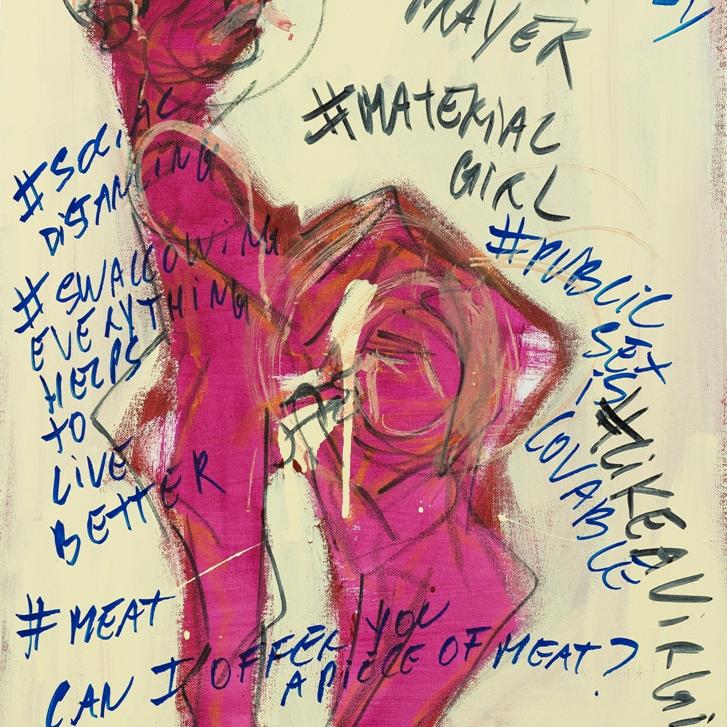 PRAYER
#MATERIAL
GIRL
#SOCIAL
DISTANCING
#SWALLOWING
EVERYTHING
HELPS
TO
LIVE
BETTER
#PUBLIC
SEX
IS
LOVABLE
#LIKEAVIRGI
#MEAT
CAN I OFFER YOU
A PIECE OF MEAT?